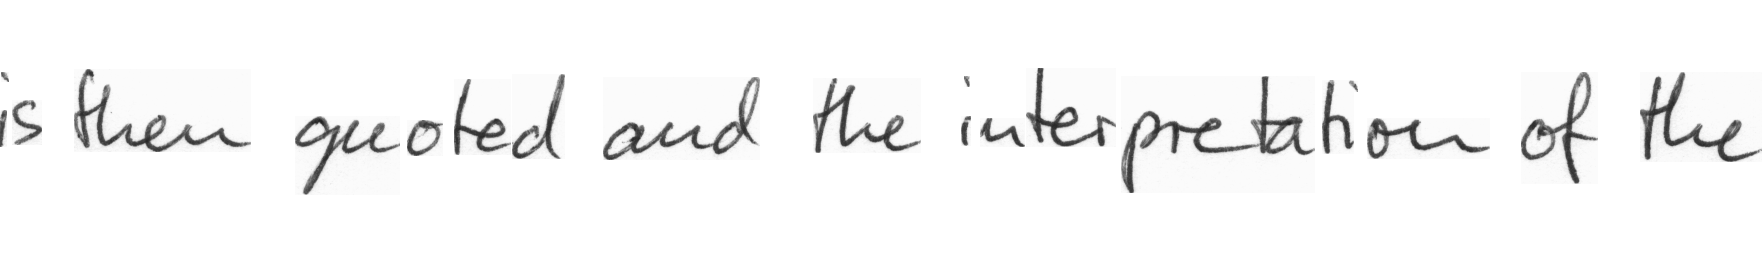 is then quoted and the interpretation of the